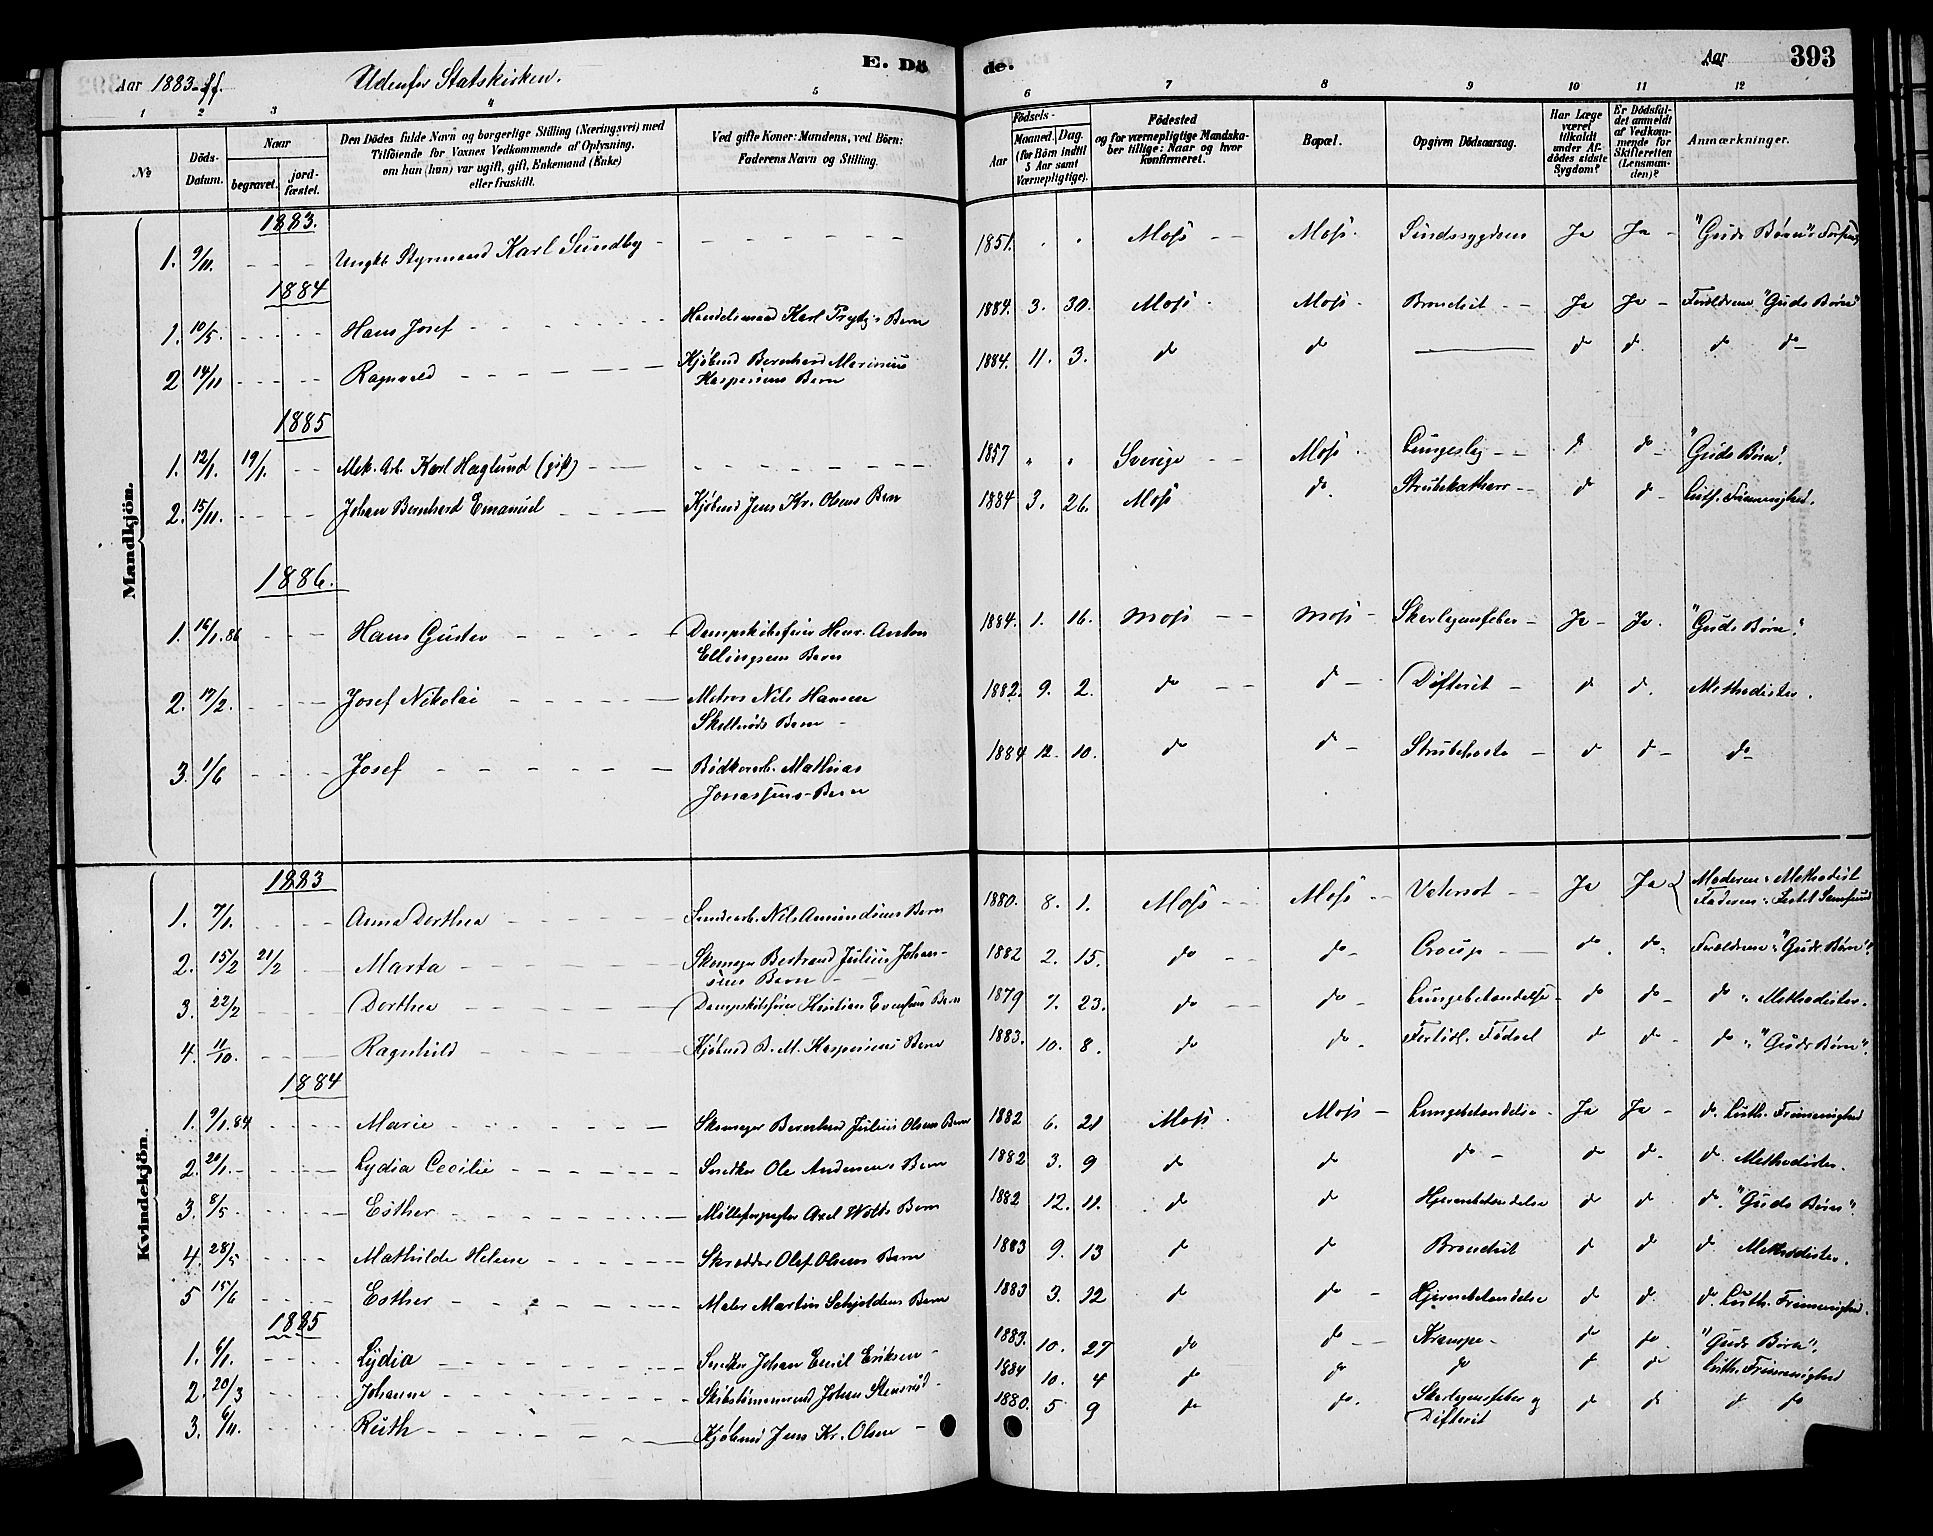 Aar 1883 ff. Udenfor Statskirken. E. Döde. Aar 393
1 2 3 4 5 6 7 8 9 10 11 12
No
Döds-Datum.
Naar
begravet.
jordfæstet.
Den Dödes fulde Navn og borgerlige Stilling (Næringsvei) med
Tilföiende for Voxnes Vedkommende af Oplysning,
om han (hun) var ugift, gift, Enkemand (Enke)
eller fraskilt.
Ved gifte Koner: Mandens, ved Börn:
Faderens Navn og Stilling.
Födsels-
Aar
Maaned. Dag.
(for Börn indtil
5 Aar samt
Værnepligtige).
Födested
og for værnepligtige Mandskaber tillige: Naar og hvor
konfirmeret.
Bopæl.
Opgiven Dödsaarsag.
Har Læge været tilkaldt under Afdödes sidste Sygdom?
Er Dödsfaldet anmeldt af Vedkommende for Skifteretten (Lensmanden)?
Anmærkninger.
Mandkjön.
1883.
1. 9/11. Ungk. Styrmand Karl Sundby 1851. Moss Moss Sindssygdom Ja Ja "Guds Børn"
1884
1. 10/5. Hans Josef Handelsmand Karl Barn 1884. 3. 30. Moss Moss Bronchit Ja Ja Forældrene "Guds Børn"
2 14/11 Ragnvald Kjøbmd Bernhard Marinius
Kaspersens Barn 1884. 11. 3. do do do do do do
1885
1. 12/1. 19/1. Mek. Arb. Karl Haglund (gift) 1857 " " Sverige Moss Lungeslag do do "Guds Børn".
2. 15/11. Johan Bernhard Emanuel Kjøbmd Jens Kr. Olsens Barn 1884 3. 26. Moss do Strubekatharr do do Luth. Frimenighed.
1886.
1. 16/1.86 Hans Gustav Dampskibsfører Henr. Anton
Ellingsens Barn 1884. 1. 16. Moss Moss Skarlagensfeber Ja Ja. "Guds Børn".
2. 17/2. Josef Nikolai Matros Nils Hansen
Barn 1882. 9. 2. do do Difterit do do. Methodister.
3. 1/6 Josef Bødkerarb. Mathias
Jonassens Barn 1884 12. 10. do do Strubehoste do do do
Kvindekjön.
1883
1. 7/1. Anna Dorthea Nils Amundsens Barn 1880. 8. 1. Moss Moss Vatersot Ja Ja Moderen: Methodist
Faderen: Samfund
2. 15/2 21/2 Marta Skomager Bertrand Julius Johansens Barn 1882 2. 15. do do Croup do do Forældrene: "Guds Børn".
3. 22/2 Dorthea Dampskibsfører Kristian Evensens Barn 1879 7. 23. do do Lungebetændelse do do do " Methodister.
4. 11/10. Ragnhild Kjøbmd B. M. Kaspersens Barn 1883. 10. 8. do do Fortidl. Fødsel do do do " "Guds Børn".
1884
1. 9/1.84 Marie Skomager Bernhard Julius Olsens Barn 1882 6. 21 Moss Moss Lungebetændelse Ja Ja do. Luth. Frimenighed
2. 20/1. Lydia Cecilie Snedker Ole Andersens Barn 1882 3. 9 do do do do do do. Methodister.
3. 8/5 Esther Axel Wolts Barn 1882 12. 11. do do Hjernebetændelse do do do. "Guds Børn".
4. 28/5 Mathilde Helene Skrædder Olaf Olsens Barn 1883 9. 13 do do Bronchit do do do. Methodister.
5 15/6 Esther Maler Martin Schjoldens Barn 1883 3. 12 do do Hjernebetændelse do do do. Luth. Frimenighed.
1885
1. 6/1. Lydia Snedker Johan Emil Eriksen 1883. 10. 27 do do Krampe do do "Guds Børn".
2. 20/3 Johanne Skibstømmermd Johan Stensrud 1884 10. 4 do do do do do Luth. Frimenighed
3. 6/11. Ruth Kjøbmd Jens Kr. Olsen 1880. 5 9 do do. Skarlagensfeber og
Difterit do do do do